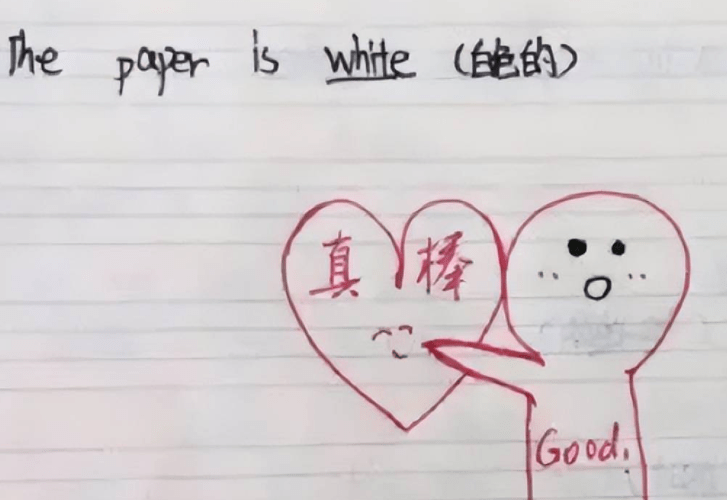 The paper is white (白色的)
真棒
Good.